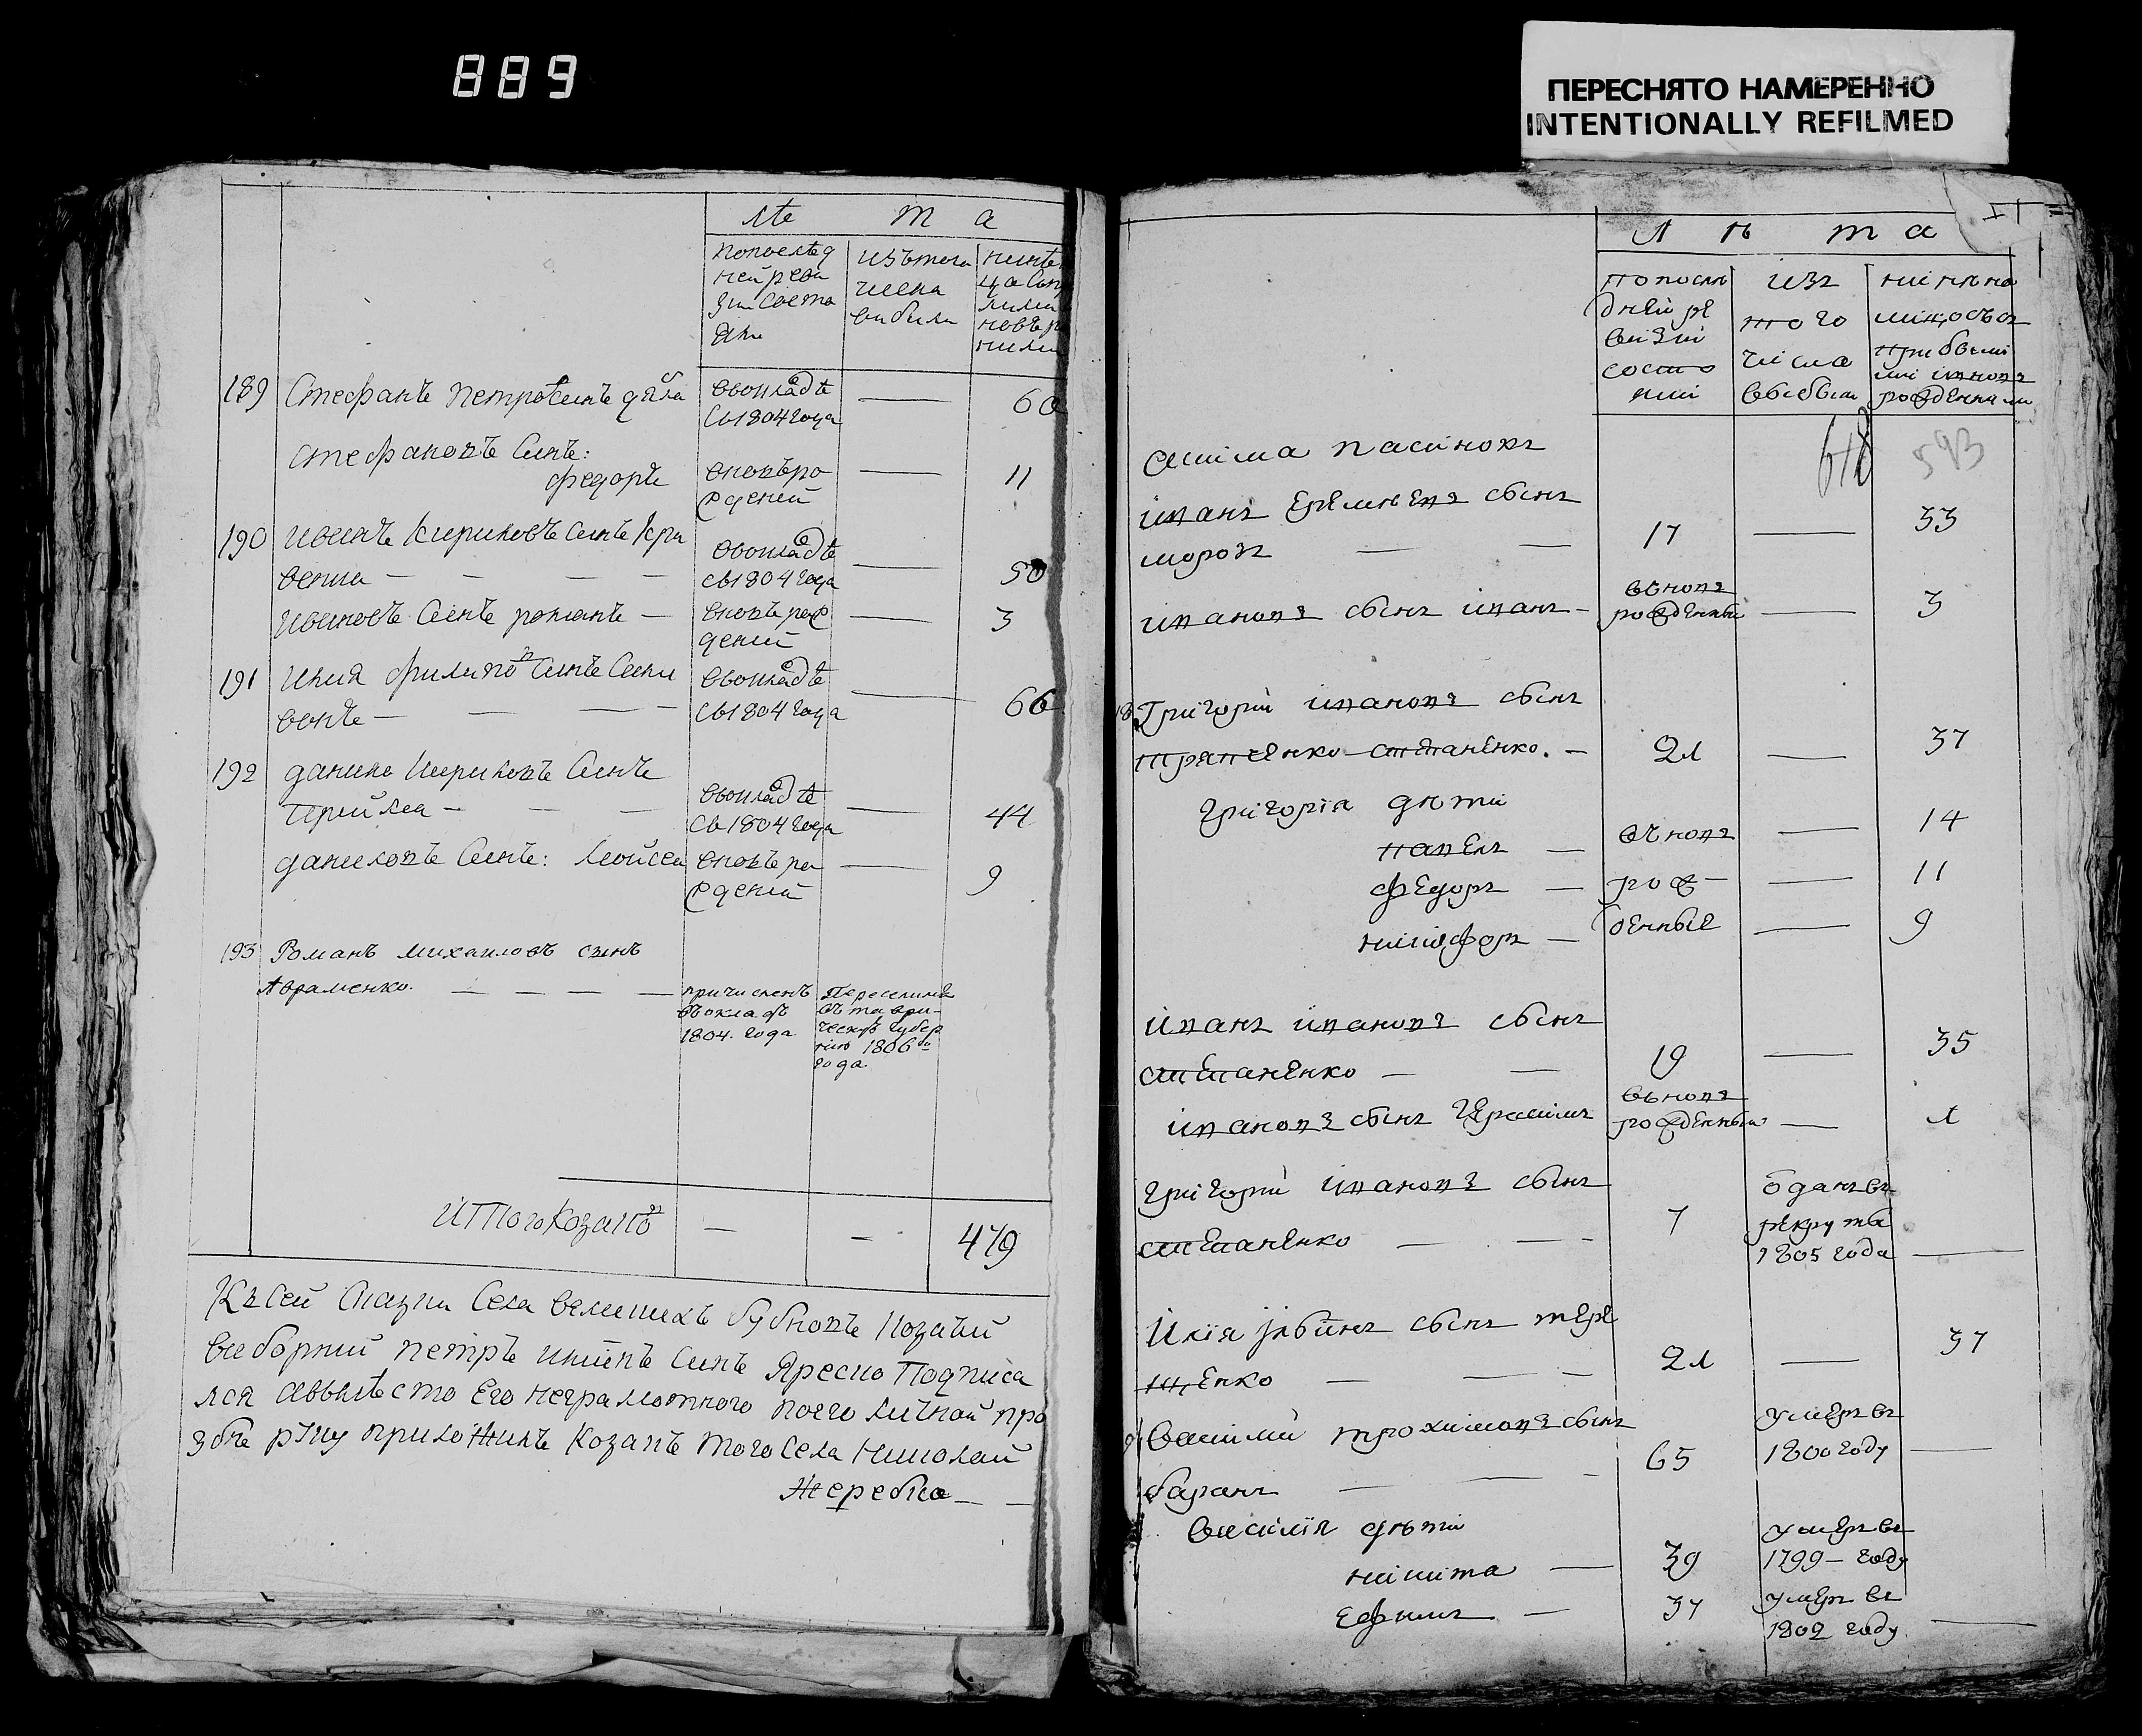 889
ПЕРЕСНЯТО НАМЕРЕННО
INTENTIONALLY REFILMED
лѣ т а
попослѣд
ней реви
зіи состо
яли
изътого
числа
выбыли
189 Стефанъ Петровъ синъ
вокладѣ
съ1804года
— 60
стефановъ Синъ:
федоръ
вновъро
жденій
— 11
190 Иванъ Кириловъ Синъ Кри
венко — — — —
вокладѣ
съ1804года
— 50
Ивановъ Синъ романъ —
вновъ рож
деній
— 3
191 Илия филиповъ Синъ
— — — —
вокладѣ
съ1804года
— 60
192 данило Кириловъ Синъ
— — —
вокладѣ
съ1804года
— 44
даниловъ Синъ: Мойсей
вновъ ро
жденій
— 9
193 Романъ Михаиловъ сынъ
Авраменко. — — — —
причисленъ
въокладъ
1804. года
Переселился
въ таври-
ческ. губер
нию 1806го
года.
ИТТого Козаковъ — — 479
Къ Сей Сказки Села великихъ бубновъ Козачий
виборний петръ илиинъ Синъ Яреско Подписа
лся авъмѣсто Его неграмотного поего личной про
збѣ руку приложилъ Козакъ того Села Николай
Жеребко — —
Л ѣ т а
по послѣ
дней ре
визіи
состо
яли
изъ
того
числа
выбыли
нинѣ на
лицо съ
прибыли
ми
рожденными
618 593
пасинокъ
иванъ Еремѣевъ сынъ
морозъ — — 17 — 33
ивановъ сынъ иванъ —
вьновъ
рожденный
— 3
Григорий ивановъ сынъ
степаненко. — 21 — 37
григорія дѣти
павелъ — вьновъ — 14
федоръ — рож- — 11
никифоръ — денные — 9
иванъ ивановъ сынъ
степаненко — — 19 — 35
ивановъ сынъ герасимъ
вьновъ
рожденный
— 1
григорий ивановъ сынъ
степаненко — — 7
отданъ въ
рекруты
1805 года
—
Илія сынъ тере
щенко — — — 21 — 37
василий трохимовъ сынъ
баранъ — — — 65
умеръ въ
1800 году
—
василія дѣти
никита — 39
умеръ въ
1799 — году
Ефимъ — 37
умеръ въ
1802 году
—